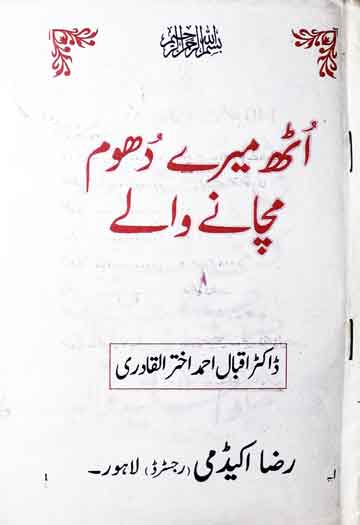 بسم اللہ الرحمن الرحیم
اُٹھ میرے دُھوم
مچانے والے
ڈاکٹر اقبال احمد اختر القادری
رضا اکیڈمی (رجسٹرڈ) لاہور۔